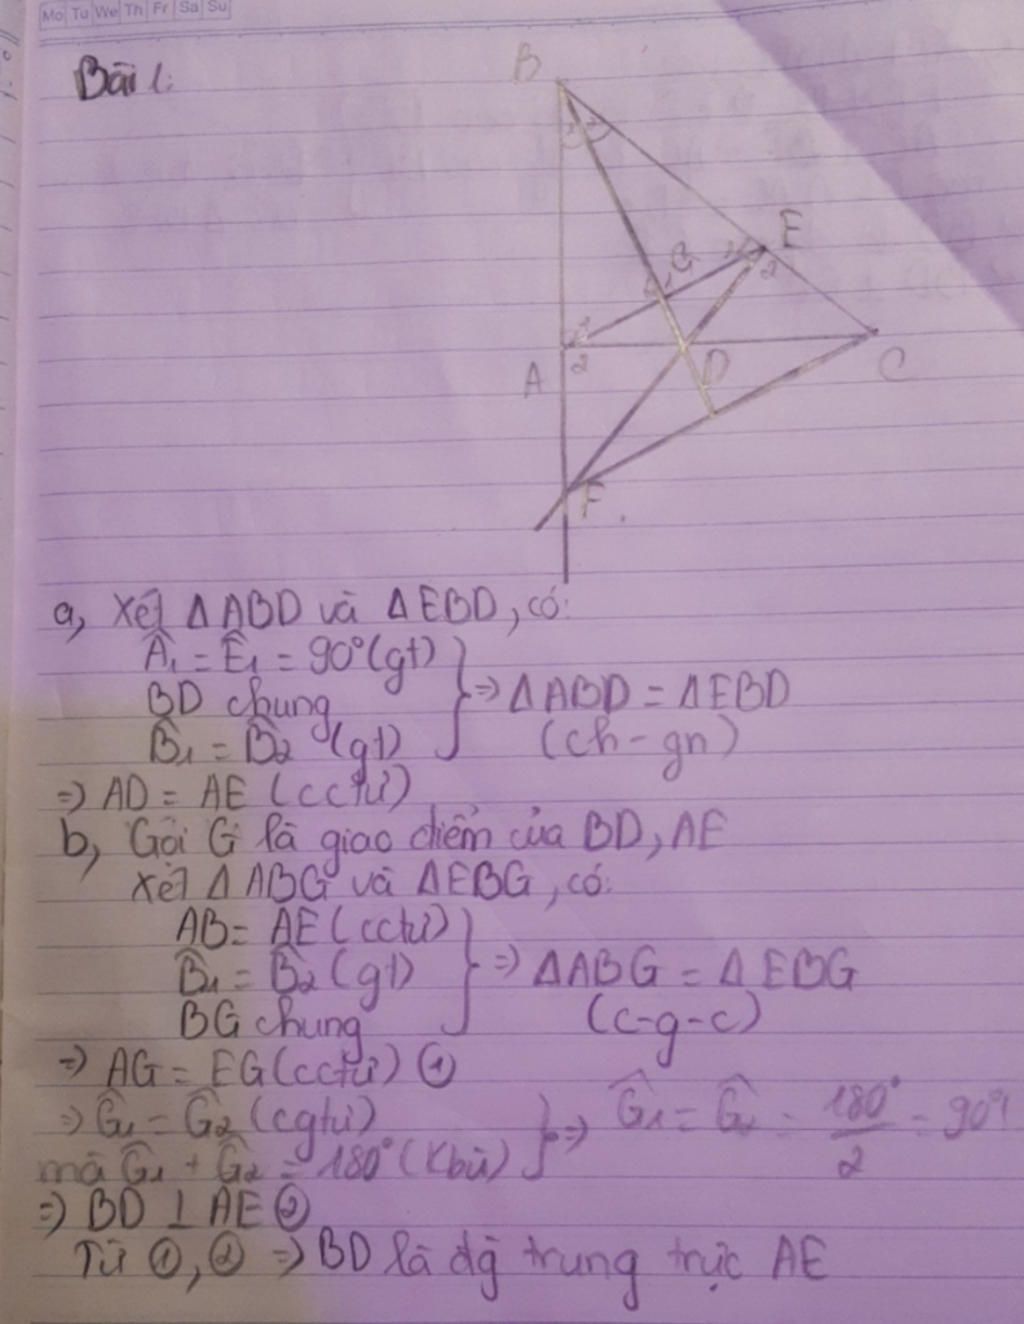 Mo Tu We Th Fr Sa Su
Bài 1:
B
E
G
A
D
C
F
a, Xét ΔABD và ΔEBD, có:
Â₁ = Ê₁ = 90° (gt)
BD chung
B̂₁ = B̂₂ (gt)
⇒ ΔABD = ΔEBD
(ch - gn)
⇒ AD = AE (cctứ)
b, Gọi G là giao điểm của BD, AE
Xét ΔABG và ΔEBG, có:
AB = AE (cctứ)
B̂₁ = B̂₂ (gt)
BG chung
⇒ ΔABG = ΔEBG
(c-g-c)
⇒ AG = EG (cctứ) ①
⇒ Ĝ₁ = Ĝ₂ (cgtứ)
mà Ĝ₁ + Ĝ₂ = 180° (Kbù)
⇒ Ĝ₁ = Ĝ₂ = 180°/2 = 90°
⇒ BD ⊥ AE ②
Từ ①, ② ⇒ BD là đg trung trực AE